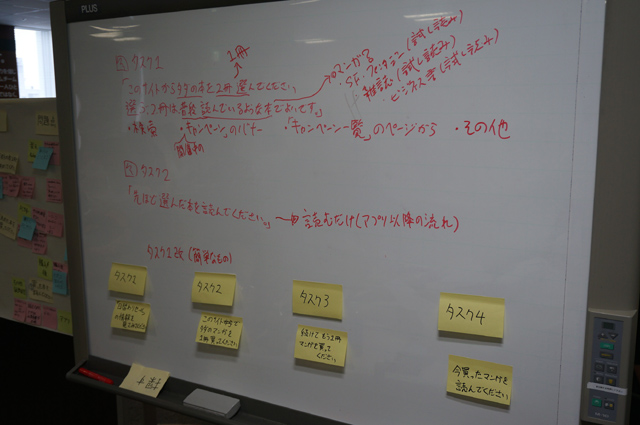 PLUS
タスク1
1冊
「このサイトからタダの本を2冊選んでください
選ぶ2冊は普段読んでいるような本でよいです。」
・検索 ・キャンペーンのバナー ・「キャンペーン一覧」のページから ・その他
マンガ
・SF・ファンタジー(試し読み)
・雑誌(試し読み)
・ビジネス書(試し読み)
タスク2
「先ほど選んだ本を読んでください。」→ 読むだけ(アプリ以降の流れ)
タスク改(簡単なもの)
タスク1
タスク2
タスク3
タスク4
このサイトの中で
タダのマンガを
1冊買ってください
続けてもう1冊
マンガを買って
ください
今買ったマンガを
読んでください